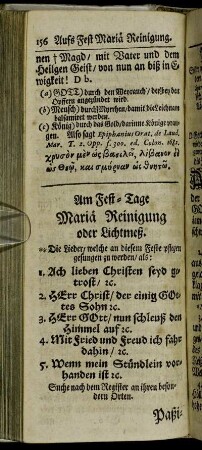 156 Auffs Fest Mariä Reinigung.
nen † Magd/ mit Vater und dem
Heilgen Geist/ von nun an biß in E-
wigkeit! D b.
(a) GOTT/ durch den Weyrauch/ der bey den
Opffern angezündet wird.
(b) Mensch/ durch Myrrhen/ damit die Leichnam
balsamiret werden.
(c) König/ durch das Gold/ darinne Könige pran-
gen. Also sagt Epiphanius Orat. de Laud.
Mar. T. 2. Opp. f. 300. ed. Colon. 1682.
χρυσὸν μὲν ὡς βασιλεῖ, λίβανον
ὡς Θεῷ, καὶ σμύρναν ὡς θνητῷ.
Am Fest-Tage
Mariä Reinigung
oder Lichtmeß.
Die Lieder/ welche an diesem Feste pflegen
gesungen zu werden/ als:
1. Ach lieben Christen seyd ge-
trost/ ꝛc.
2. HErr Christ/ der einig GOt-
tes Sohn ꝛc.
3. HErr GOtt/ nun schleuß den
Himmel auf ꝛc.
4. Mit Fried und Freud ich fahr
dahin/ ꝛc.
5. Wenn mein Stündlein vor-
handen ist ꝛc.
Suche nach dem Register an ihren beson-
dern Orten.
Paßi-